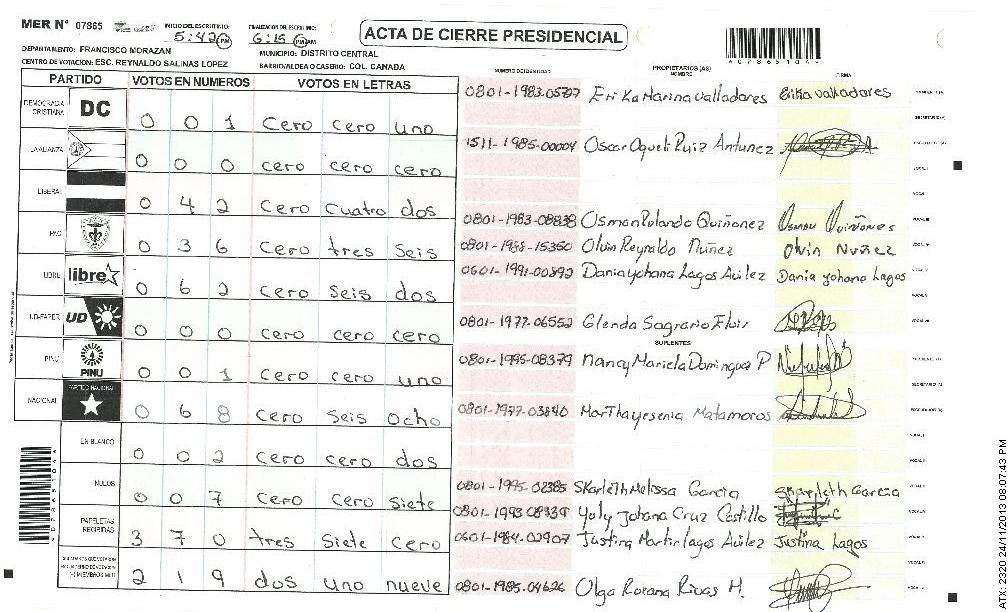 MER N° 07865 INICIO DEL ESCRUTINIO: 5:42 PM FINALIZACIÓN DEL ESCRUTINIO: 6:15 PM AM ACTA DE CIERRE PRESIDENCIAL
DEPARTAMENTO: FRANCISCO MORAZAN MUNICIPIO: DISTRITO CENTRAL
CENTRO DE VOTACION: ESC. REYNALDO SALINAS LOPEZ BARRIO/ALDEA O CASERIO: COL. CANADA
PARTIDO VOTOS EN NUMEROS VOTOS EN LETRAS NUMERO DE IDENTIDAD PROPIETARIOS (AS) NOMBRE FIRMA
DEMOCRACIA CRISTIANA DC 0 0 1 Cero cero uno
LA ALIANZA 0 0 0 cero cero cero
LIBERAL 0 4 2 Cero cuatro dos
PAC 0 3 6 Cero tres Seis
LIBRE libre 0 6 2 cero Seis dos
UD-FAPER UD 0 0 0 Cero cero cero
PINU PINU 0 0 1 Cero cero uno
NACIONAL PARTIDO NACIONAL 0 6 8 Cero seis Ocho
EN BLANCO 0 0 2 Cero cero dos
NULOS 0 0 7 Cero Cero Siete
PAPELETAS RECIBIDAS 3 7 0 tres Siete Cero
2 1 9 dos uno nueve
0801-1983-05707 Erika Marina Valladares Erika Valladares
1511-1985-00004 Oscar Oqueli Ruiz Antunez
0801-1983-08838 Osman Rolando Quiñonez Osman Quiñones
0801-1988-15350 Olvin Reynaldo Nuñez Olvin Nuñez
0601-1991-00892 Dania Yohana Lagos Avilez Dania Yohana Lagos
0801-1977-06552 Glenda Sagrario
SUPLENTES
0801-1995-08379 Nancy Mariela Dominguez P
0801-1977-03840 Martha Yesenia Matamoros
0801-1995-02385 Skarleth Melissa Garcia Skarleth Garcia
0801-1993-08339 Yoly Johana Cruz Castillo
0601-1984-02907 Justina Martir Lagos Avilez Justina Lagos
0801-1985-04626 Olga Rivas M.
ATX 2320 24/11/2013 08:07:43 PM